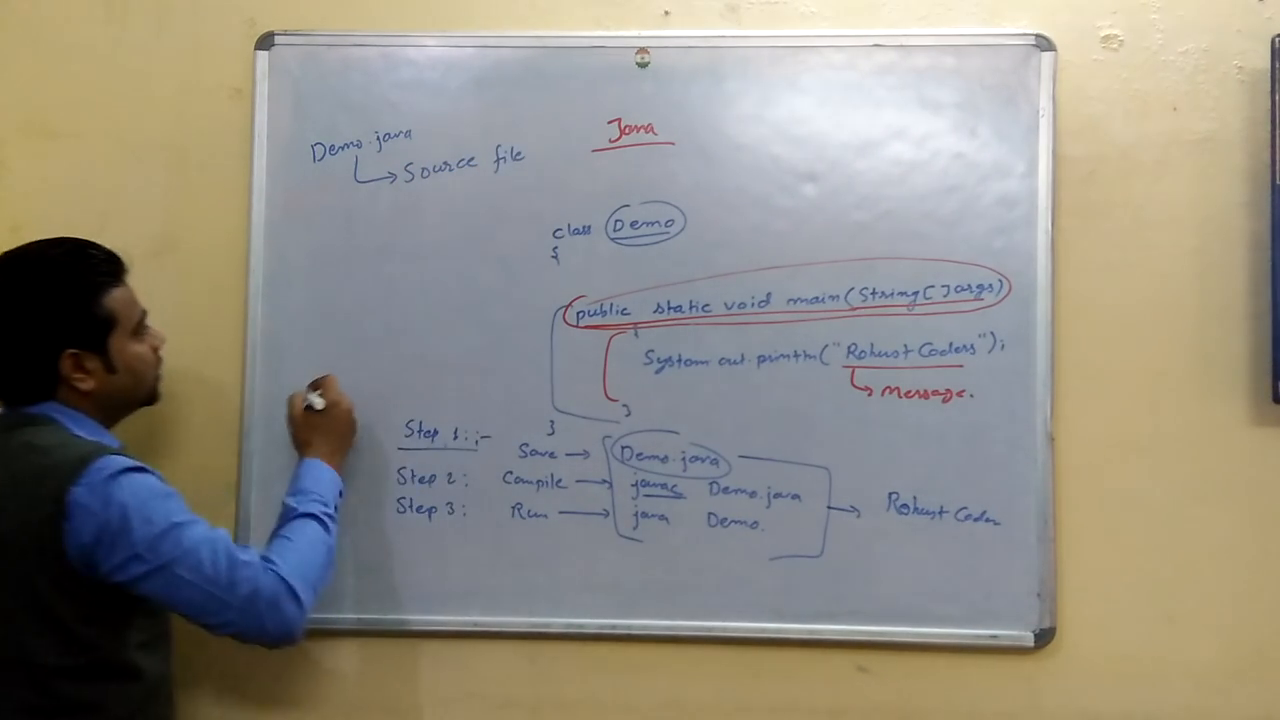 Java
Demo.java
Source file
class Demo
{
public static void main(String[]args)
{
System.out.println("Robust Coders");
Message.
}
}
Step 1:-
Save → Demo.java
Step 2: Compile → javac Demo.java
Step 3: Run → java Demo.
Robust Coder